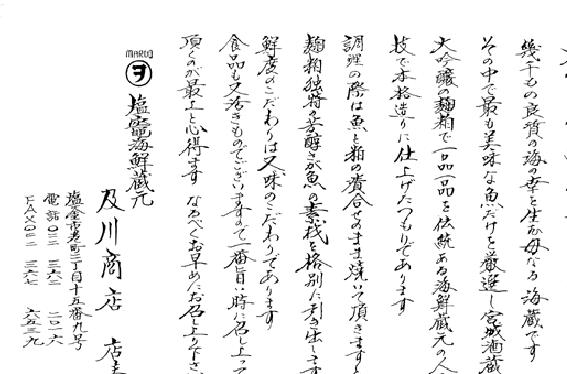 幾千もの良質の海の幸と生み母なる 海蔵です
その中で最も美味な魚だけを厳選し宮城酒蔵
大吟醸の麹粕で一品一品を伝統ある海鮮蔵元の人
技で本格造りに仕上げたつもりであります
調理の際は魚と粕の漬合せのまま焼いて頂きますと
麹粕独特な芳醇さが魚の素材を格別に引き出します
鮮度のこだわりは又味のこだわりであります
食品も又活きものでございますので一番旨い時に召し上って
頂くのが最上と心得ます なるべくお早めにお召し上り下さ
MARUO
ヲ
塩竈海鮮蔵元
及川商店 店主
塩釜市港町二丁目十五番九号
電話〇二二 三六二 二〇一六
FAX〇二二 三六七 六五三九